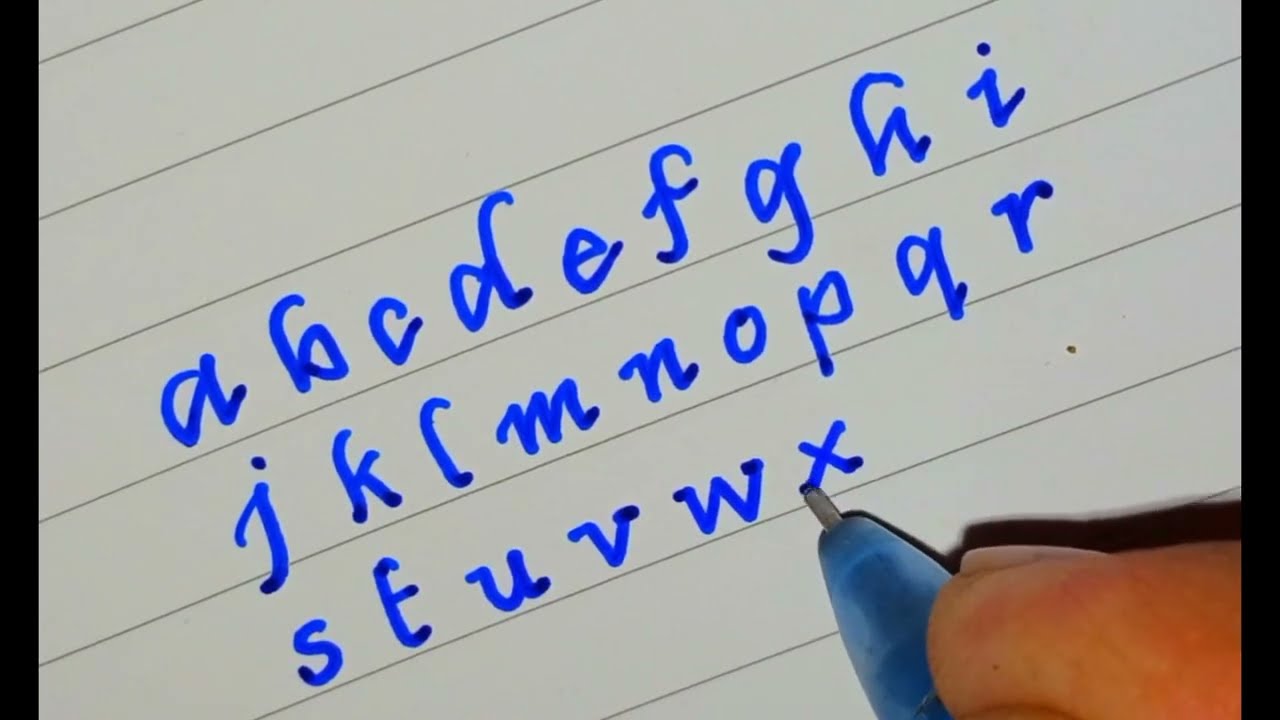 a b c d e f g h i
j k l m n o p q r
s t u v w x